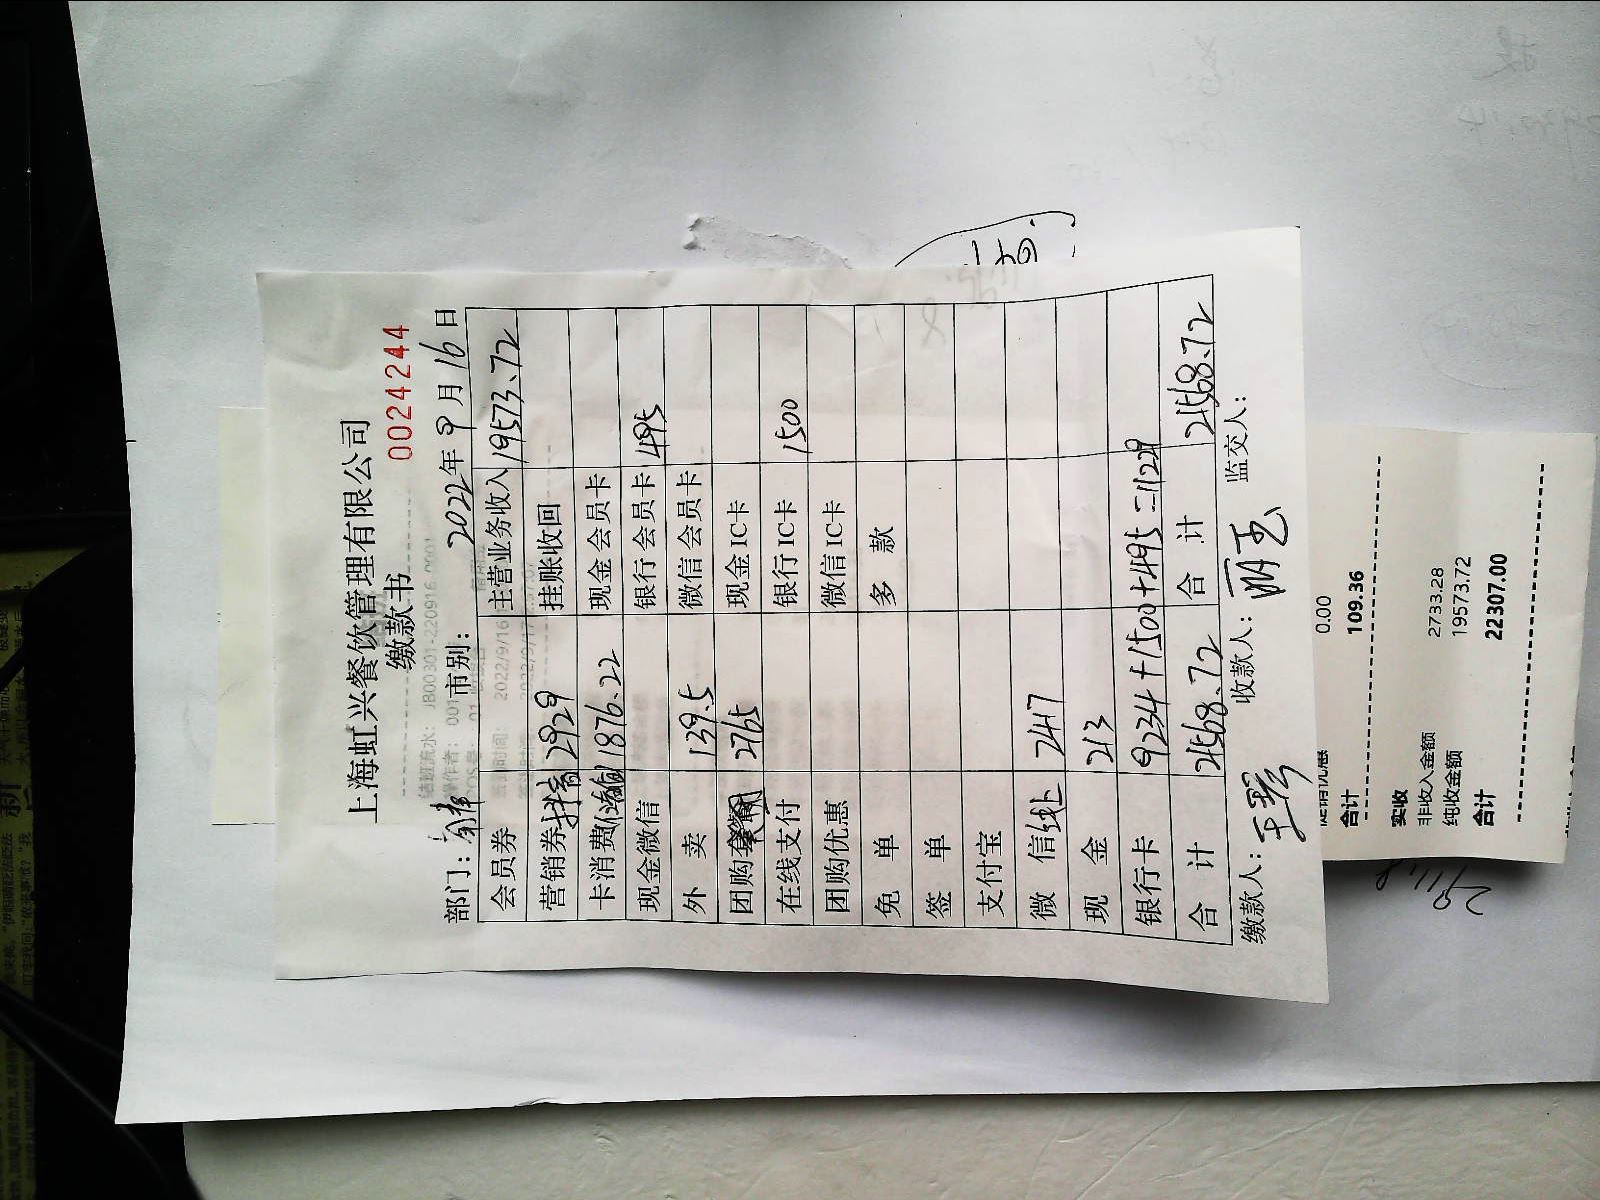 上海虹兴餐饮管理有限公司
缴款书
0024244
部门： 市别： 2022年9月16日
会员券 主营业务收入 19573.72
营销券抖音 2929 挂账收回
卡消费 1876.22 现金会员卡
现金微信 银行会员卡 495
外 卖 139.5 微信会员卡
团购 2765 现金IC卡
在线支付 银行IC卡 1500
团购优惠 微信IC卡
免 单 多 款
签 单
支付宝
微 信线上 2417
现 金 213
银行卡 9234+1500+495=11229
合 计 21568.72 合 计 21568.72
缴款人：王琴 收款人：丽玉 监交人：
结班流水：JB00301-220916-0001
操作者：001
2022/9/16
0.00
合计 109.36
实收
非收入金额 2733.28
纯收金额 19573.72
合计 22307.00